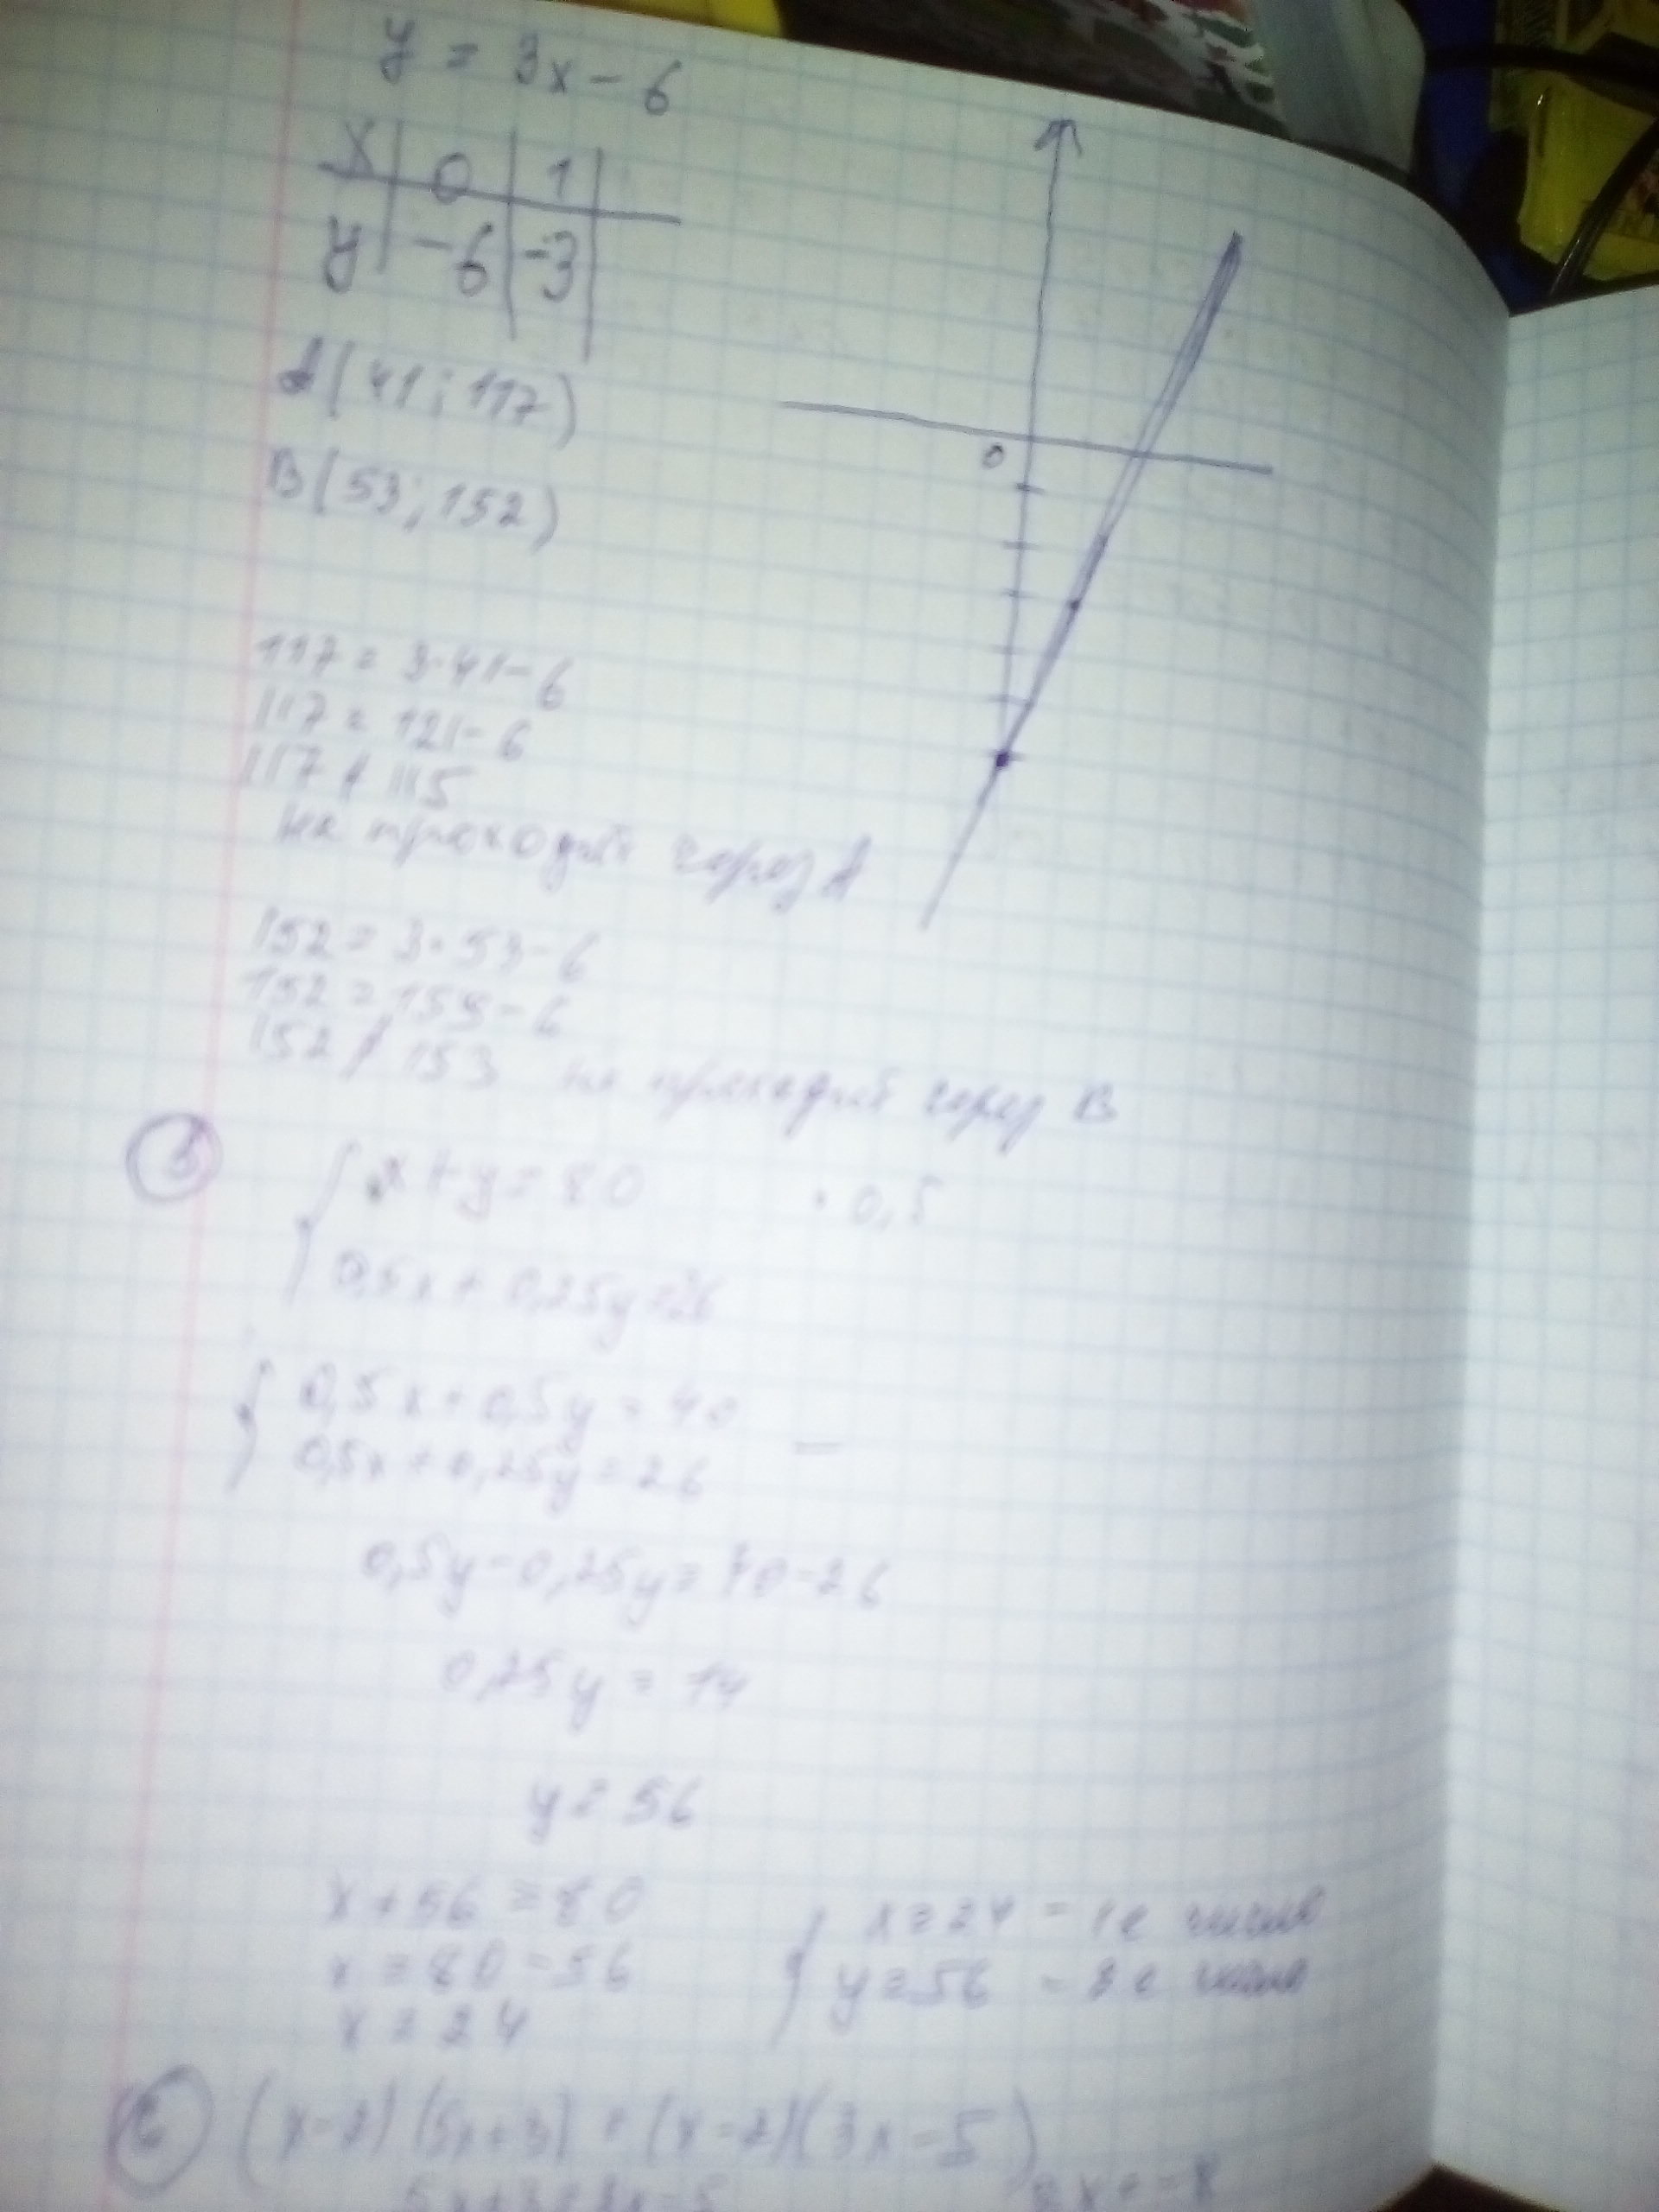 y = 3x - 6
x 0 1
y -6 -3
A(41; 117)
B(53; 152)
0
117 = 3·41-6
117 = 121-6
117 ≠ 115
не проходит через A
152 = 3·53-6
152 = 159-6
152 ≠ 153 не проходит через B
x + y = 80 · 0,5
0,5x + 0,25y = 26
0,5x + 0,5y = 40
0,5x + 0,25y = 26 —
0,5y - 0,25y = 40 - 26
0,25y = 14
y = 56
x + 56 = 80
x = 80 - 56
x = 24
x = 24 - 1е число
y = 56 - 2е число
6 (x-2)(5x+3) = (x-2)(3x-5)
5x+3=3x-5
2x = -8